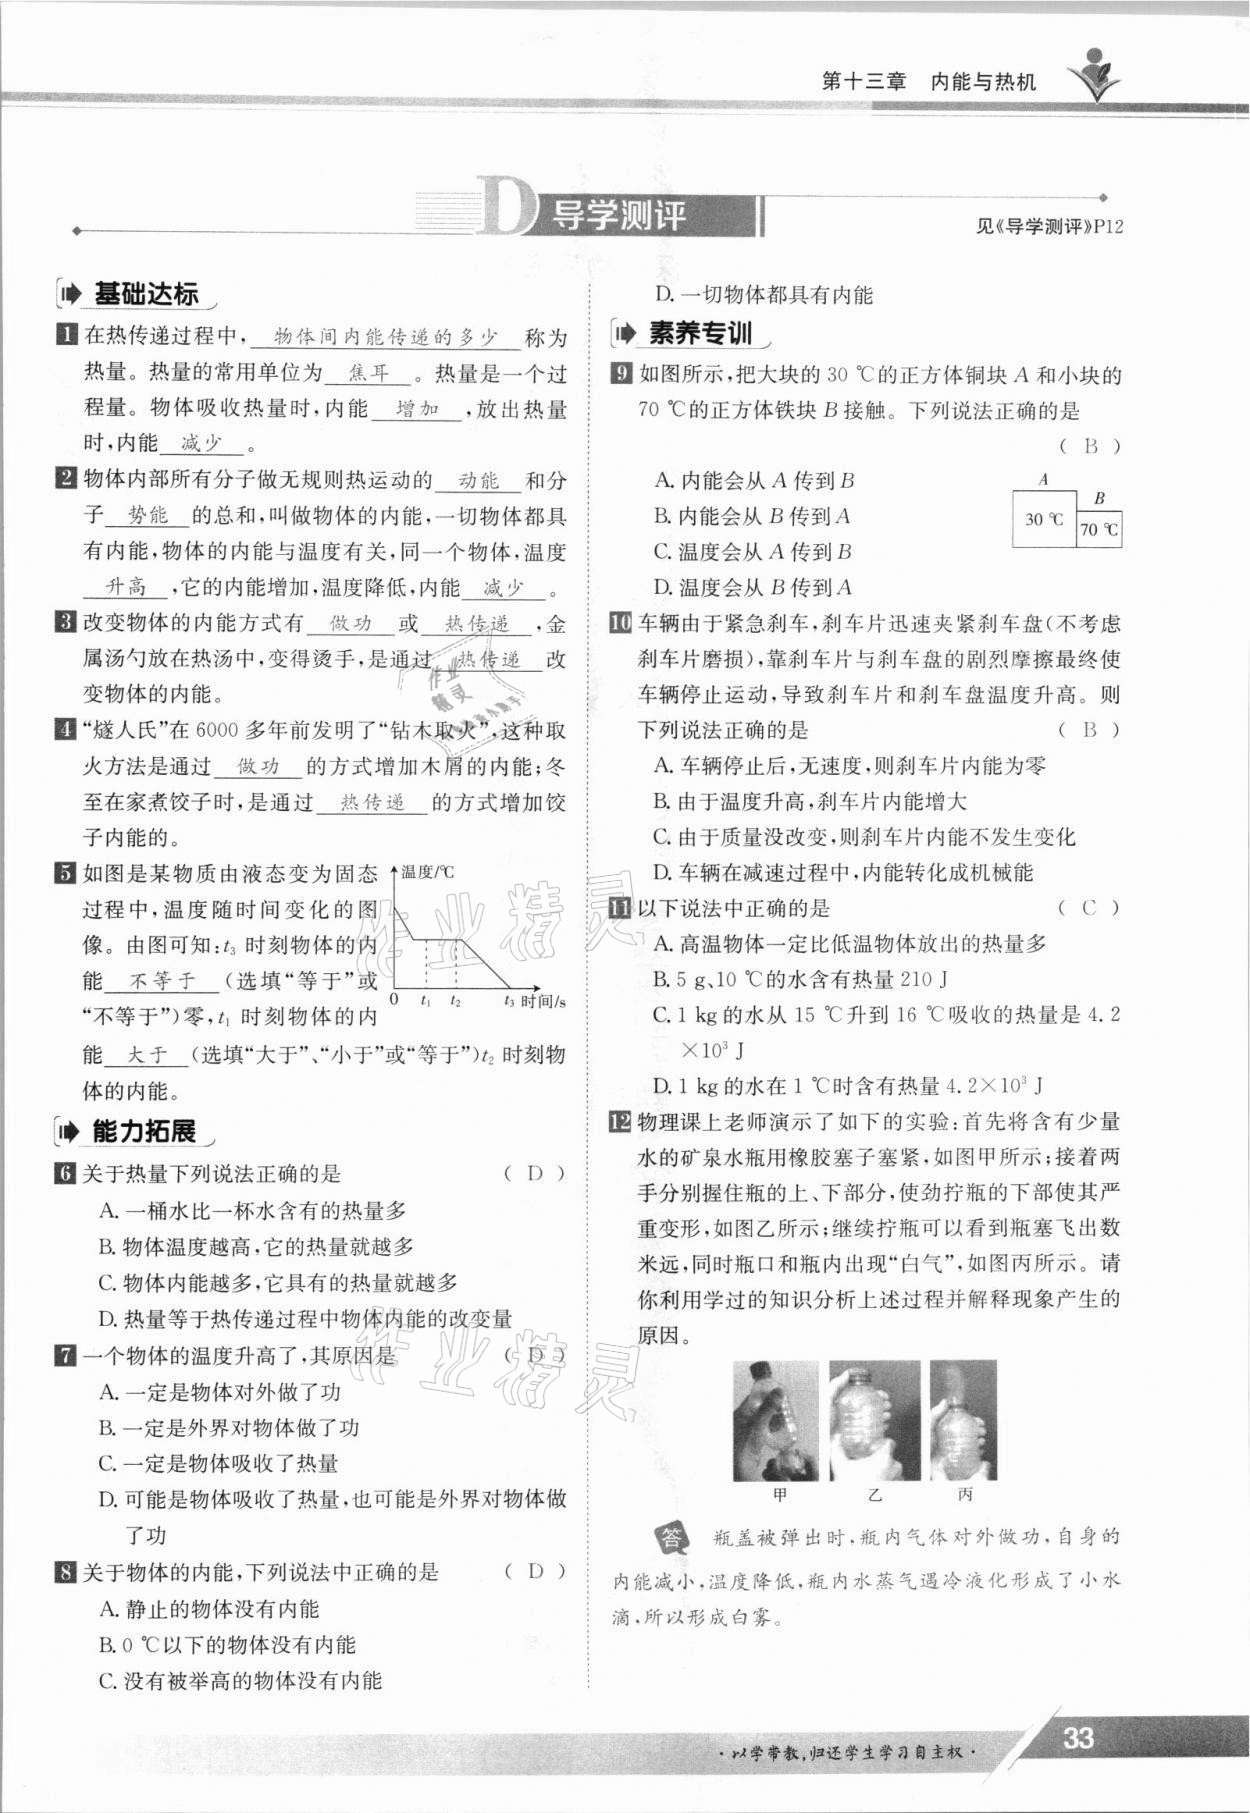 第十三章 内能与热机
D 导学测评
见《导学测评》P12
基础达标
1 在热传递过程中,物体间内能传递的多少称为
热量。热量的常用单位为焦耳。热量是一个过
程量。物体吸收热量时,内能增加,放出热量
时,内能减少。
2 物体内部所有分子做无规则热运动的动能和分
子势能的总和,叫做物体的内能,一切物体都具
有内能,物体的内能与温度有关,同一个物体,温度
升高,它的内能增加,温度降低,内能减少。
3 改变物体的内能方式有做功或热传递,金
属汤勺放在热汤中,变得烫手,是通过热传递改
变物体的内能。
4 “燧人氏”在 6000 多年前发明了“钻木取火”,这种取
火方法是通过做功的方式增加木屑的内能;冬
至在家煮饺子时,是通过热传递的方式增加饺
子内能的。
5 如图是某物质由液态变为固态
过程中,温度随时间变化的图
像。由图可知:t₃ 时刻物体的内
能不等于(选填“等于”或
“不等于”)零,t₁ 时刻物体的内
能大于(选填“大于”、“小于”或“等于”)t₂ 时刻物
体的内能。
温度/℃
0 t₁ t₂ t₃ 时间/s
能力拓展
6 关于热量下列说法正确的是 ( D )
A. 一桶水比一杯水含有的热量多
B. 物体温度越高,它的热量就越多
C. 物体内能越多,它具有的热量就越多
D. 热量等于热传递过程中物体内能的改变量
7 一个物体的温度升高了,其原因是 ( D )
A. 一定是物体对外做了功
B. 一定是外界对物体做了功
C. 一定是物体吸收了热量
D. 可能是物体吸收了热量,也可能是外界对物体做
了功
8 关于物体的内能,下列说法中正确的是 ( D )
A. 静止的物体没有内能
B. 0 ℃以下的物体没有内能
C. 没有被举高的物体没有内能
D. 一切物体都具有内能
素养专训
9 如图所示,把大块的 30 ℃的正方体铜块 A 和小块的
70 ℃的正方体铁块 B 接触。下列说法正确的是
( B )
A. 内能会从 A 传到 B
B. 内能会从 B 传到 A
C. 温度会从 A 传到 B
D. 温度会从 B 传到 A
A
B
30 ℃
70 ℃
10 车辆由于紧急刹车,刹车片迅速夹紧刹车盘(不考虑
刹车片磨损),靠刹车片与刹车盘的剧烈摩擦最终使
车辆停止运动,导致刹车片和刹车盘温度升高。则
下列说法正确的是 ( B )
A. 车辆停止后,无速度,则刹车片内能为零
B. 由于温度升高,刹车片内能增大
C. 由于质量没改变,则刹车片内能不发生变化
D. 车辆在减速过程中,内能转化成机械能
11 以下说法中正确的是 ( C )
A. 高温物体一定比低温物体放出的热量多
B. 5 g、10 ℃的水含有热量 210 J
C. 1 kg 的水从 15 ℃升到 16 ℃吸收的热量是 4.2
×10³ J
D. 1 kg 的水在 1 ℃时含有热量 4.2×10³ J
12 物理课上老师演示了如下的实验:首先将含有少量
水的矿泉水瓶用橡胶塞子塞紧,如图甲所示;接着两
手分别握住瓶的上、下部分,使劲拧瓶的下部使其严
重变形,如图乙所示;继续拧瓶可以看到瓶塞飞出数
米远,同时瓶口和瓶内出现“白气”,如图丙所示。请
你利用学过的知识分析上述过程并解释现象产生的
原因。
甲 乙 丙
答 瓶盖被弹出时,瓶内气体对外做功,自身的
内能减小,温度降低,瓶内水蒸气遇冷液化形成了小水
滴,所以形成白雾。
作业精灵
作业精灵
作业
精灵
· 以学带教,归还学生学习自主权 ·
33